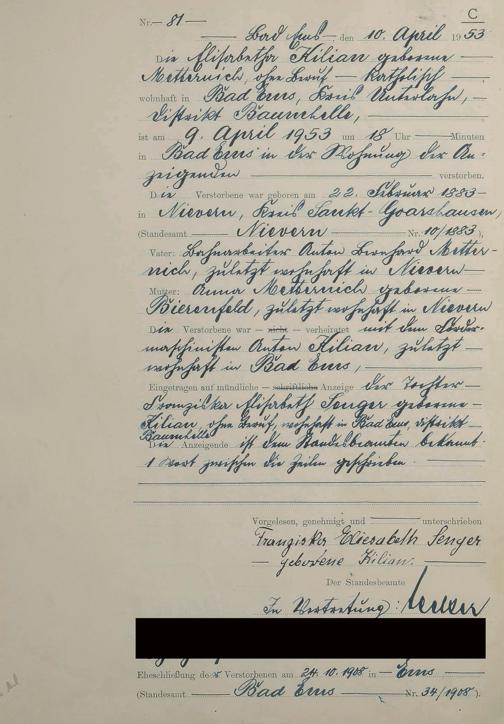 C
Nr. 81
Bad Ems, den 10. April 1953
Die Elisabetha Kilian geborene
Metternich, ohne Beruf — katholisch —
wohnhaft in Bad Ems, Kreis Unterlahn, —
Distrikt Baumhelle,
ist am 9. April 1953 um 18 Uhr — Minuten
in Bad Ems in der Wohnung der An-
zeigenden — verstorben.
Die Verstorbene war geboren am 22. Februar 1883 —
in Nievern, Kreis Sankt-Goarshausen,
(Standesamt — Nievern — Nr. 10/1883),
Vater: Bahnarbeiter Anton Bernhard Metter-
nich, zuletzt wohnhaft in Nievern —
Mutter: Anna Metternich geborene —
Bierenfeld, zuletzt wohnhaft in Nievern
Die Verstorbene war — nicht — verheiratet mit dem Förder-
maschinisten Anton Kilian, zuletzt —
wohnhaft in Bad Ems,
Eingetragen auf mündliche — schriftliche Anzeige der Tochter —
Franziska Elisabeth Senger geborene —
Kilian, ohne Beruf, wohnhaft in Bad Ems, Distrikt
Baumhelle
Die Anzeigende ist dem Standesbeamten bekannt.
1 Wort zwischen die Zeilen geschrieben.
Vorgelesen, genehmigt und — unterschrieben
Franziska Eliesabeth Senger
— geborene Kilian.
Der Standesbeamte
In Vertretung:
Eheschließung der Verstorbenen am 24.10.1908 in — Ems —
(Standesamt — Bad Ems — Nr. 34/1908).